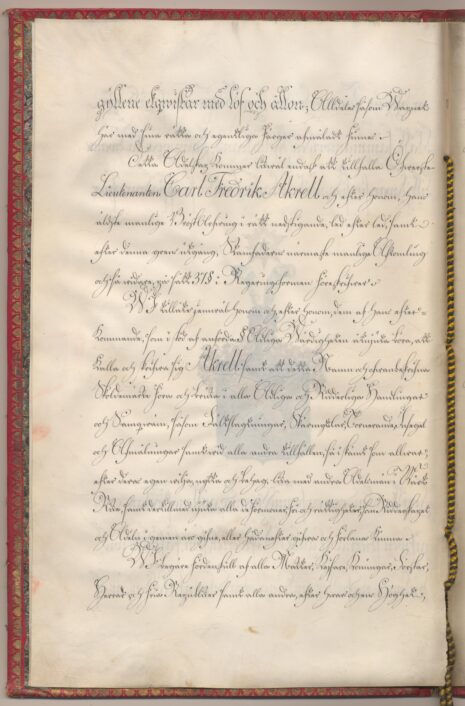 gyllene ekqwistar med löf och ållon; Alldeles såsom Wapnet
här med sina rätta och egentliga Färger afmåladt finnes.
Detta Adelskap kommer likväl endast att tillfalla Öfverste-
Lieutenanten Carl Fredrik Akrell och efter honom, hans
äldste manlige Bröst Arfwinge i rätt nedstigande led efter led, samt
efter denna gren utgång, Stamfadrens närmaste manlige Afkomling
och så vidare, på sätt 37 § i Regeringsformen föreskrifver.
Wi tillåta jemväl honom och efter honom, dem af hans efter-
kommande, som i thy åt anförda § Adeliga Wärdigheten åtnjuta böra, att
kalla och skrifva sig Akrell samt att detta Namn och ofvanbeskrifne
Sköldemärke föra och bruka i alla Adeliga och Ridderliga Handlingar
och Samqväm, såsom Fältslagningar, Stormgslar, Torneranden, Insegel
och Afmålningar samt vid alla andra tillfällen, så i skämt som allvar,
efter deras egen vilja, nytta och behag, lika med andra Adelsmän i Wårt
Rike, samt derutinnan njuta alla de förmoner, fri och rättigheter, som Ridderskapet
och Adeln i gemen äro gifne, eller hädanefter gifvas och förlänas kunna.
Wi begäre fördenskull af alla Magter, Kejsare, Konungar, Furstar,
Herrar och fria Republiker samt alla andra, efter hvars och ens Höghet,